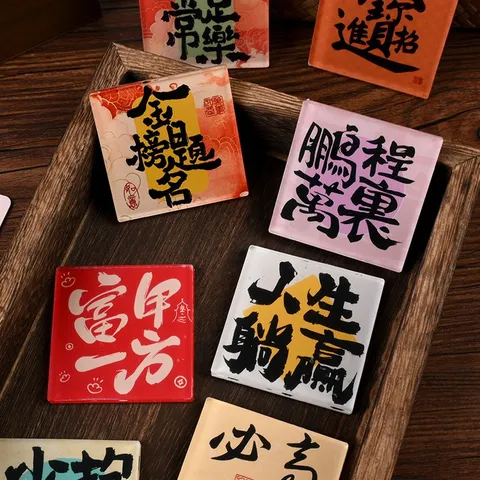 足
常樂
進招
金
榜題
名
鵬程
萬裏
富甲
一方
人生
躺贏
必